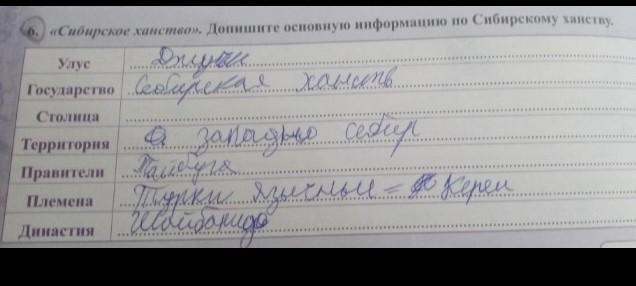 6. «Сибирское ханство». Допишите основную информацию по Сибирскому ханству.
Улус Джучи
Государство Себирская ханств
Столица
Территория западно себир
Правители Тайбуга
Племена Турки язычные = Кереи
Династия Шайбанидо